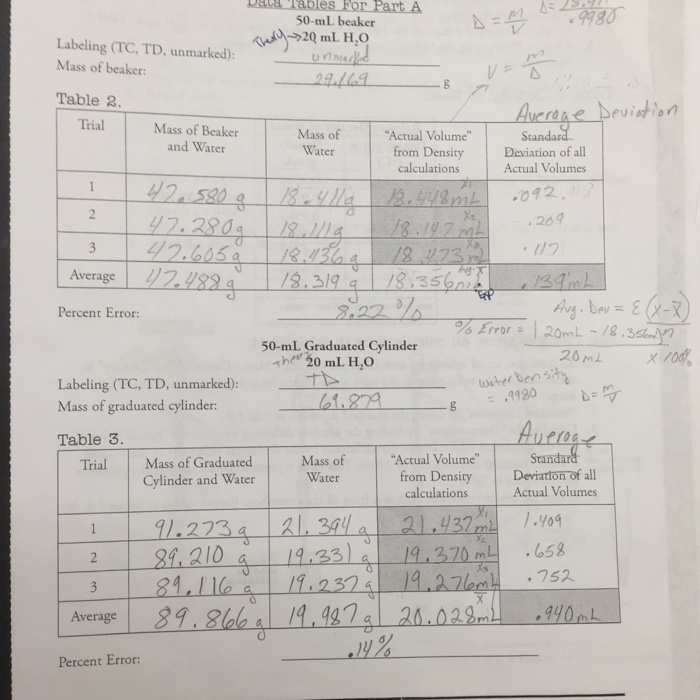 Data Tables For Part A
50-mL beaker
Theory → 20 mL H₂O
D = m/V
.9980
Labeling (TC, TD, unmarked): unmarked
Mass of beaker: 29.169 g
V = m/D
Table 2.
Average Deviation
Trial | Mass of Beaker and Water | Mass of Water | "Actual Volume" from Density calculations | Standard Deviation of all Actual Volumes
1 | 47.580 g | 18.411g | 18.448mL X₁ | .092
2 | 47.280g | 18.111g | 18.147 mL X₂ | .209
3 | 47.605g | 18.436 g | 18.473 mL X₃ | .117
Average | 47.488g | 18.319 g | 18.356 mL Avg. X̄ | .139 mL
Exp
Percent Error: 8.22 %
Avg. Dev = Σ(X-X̄)
n
% Error = |20mL - 18.356mL|
20 mL
x 100%
50-mL Graduated Cylinder
Theory 20 mL H₂O
Labeling (TC, TD, unmarked): TD
Mass of graduated cylinder: 69.879 g
water density
= .9980
D = m/V
Table 3.
Average
Trial | Mass of Graduated Cylinder and Water | Mass of Water | "Actual Volume" from Density calculations | Standard Deviation of all Actual Volumes
1 | 91.273g | 21.394 g | 21.437 mL X₁ | 1.409
2 | 89.210 g | 19.331 g | 19.370 mL X₂ | .658
3 | 89.116 g | 19.237 g | 19.276mL X₃ | .752
Average | 89.866 g | 19.987 g | 20.028mL X̄ | .940 mL
Percent Error: .14%